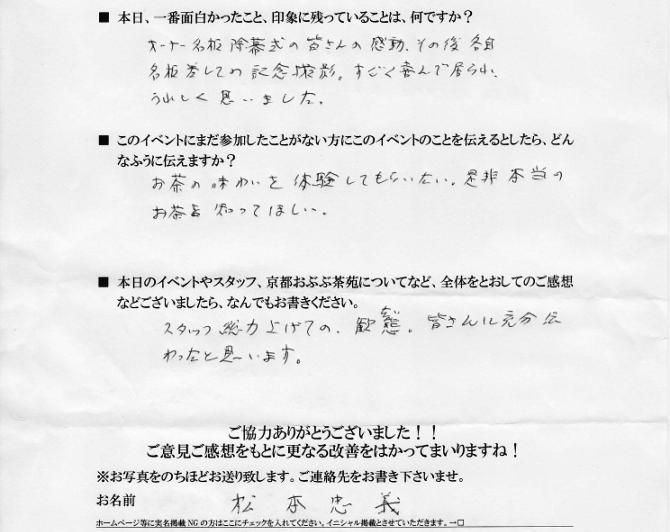 ■ 本日、一番面白かったこと、印象に残っていることは、何ですか？
オーナー名板除幕式の皆さんの感動、その後各自
名板差しての記念撮影。すごく喜んで居られ、
うれしく思いました。
■ このイベントにまだ参加したことがない方にこのイベントのことを伝えるとしたら、どん
なふうに伝えますか？
お茶の味わいを体験してもらいたい。是非本当の
お茶を知ってほしい。
■ 本日のイベントやスタッフ、京都おぶぶ茶苑についてなど、全体をとおしてのご感想
などございましたら、なんでもお書きください。
スタッフ総力上げての、歓態。皆さんに充分伝
わったと思います。
ご協力ありがとうございました！！
ご意見ご感想をもとに更なる改善をはかってまいりますね！
※お写真をのちほどお送り致します。ご連絡先をお書き下さいませ。
お名前 松本忠義
ホームページ等に実名掲載 NG の方はここにチェックを入れてください。イニシャル掲載とさせていただきます。→□